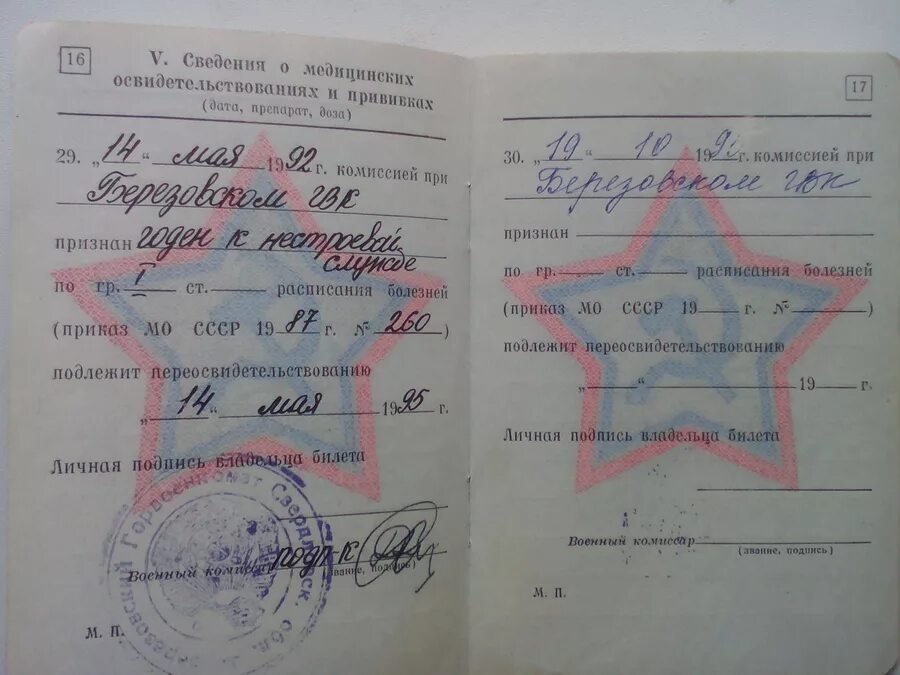 16
V. Сведения о медицинских
освидетельствованиях и прививках
(дата, препарат, доза)
29. „14“ мая 1992 г. комиссией при
Березовском ГВК
признан годен к нестроевой
службе
по гр. I ст. расписания болезней
(приказ МО СССР 1987 г. № 260)
подлежит переосвидетельствованию
„14“ мая 1995 г.
Личная подпись владельца билета
подп-к
Военный комиссар
(звание, подпись)
М. П.
Березовский Горвоенкомат Свердловск. обл.
17
30. „19“ 10 199 г. комиссией при
Березовском ГВК
признан
по гр. ст. расписания болезней
(приказ МО СССР 19 г. № )
подлежит переосвидетельствованию
„ “ 19 г.
Личная подпись владельца билета
Военный комиссар
(звание, подпись)
М. П.